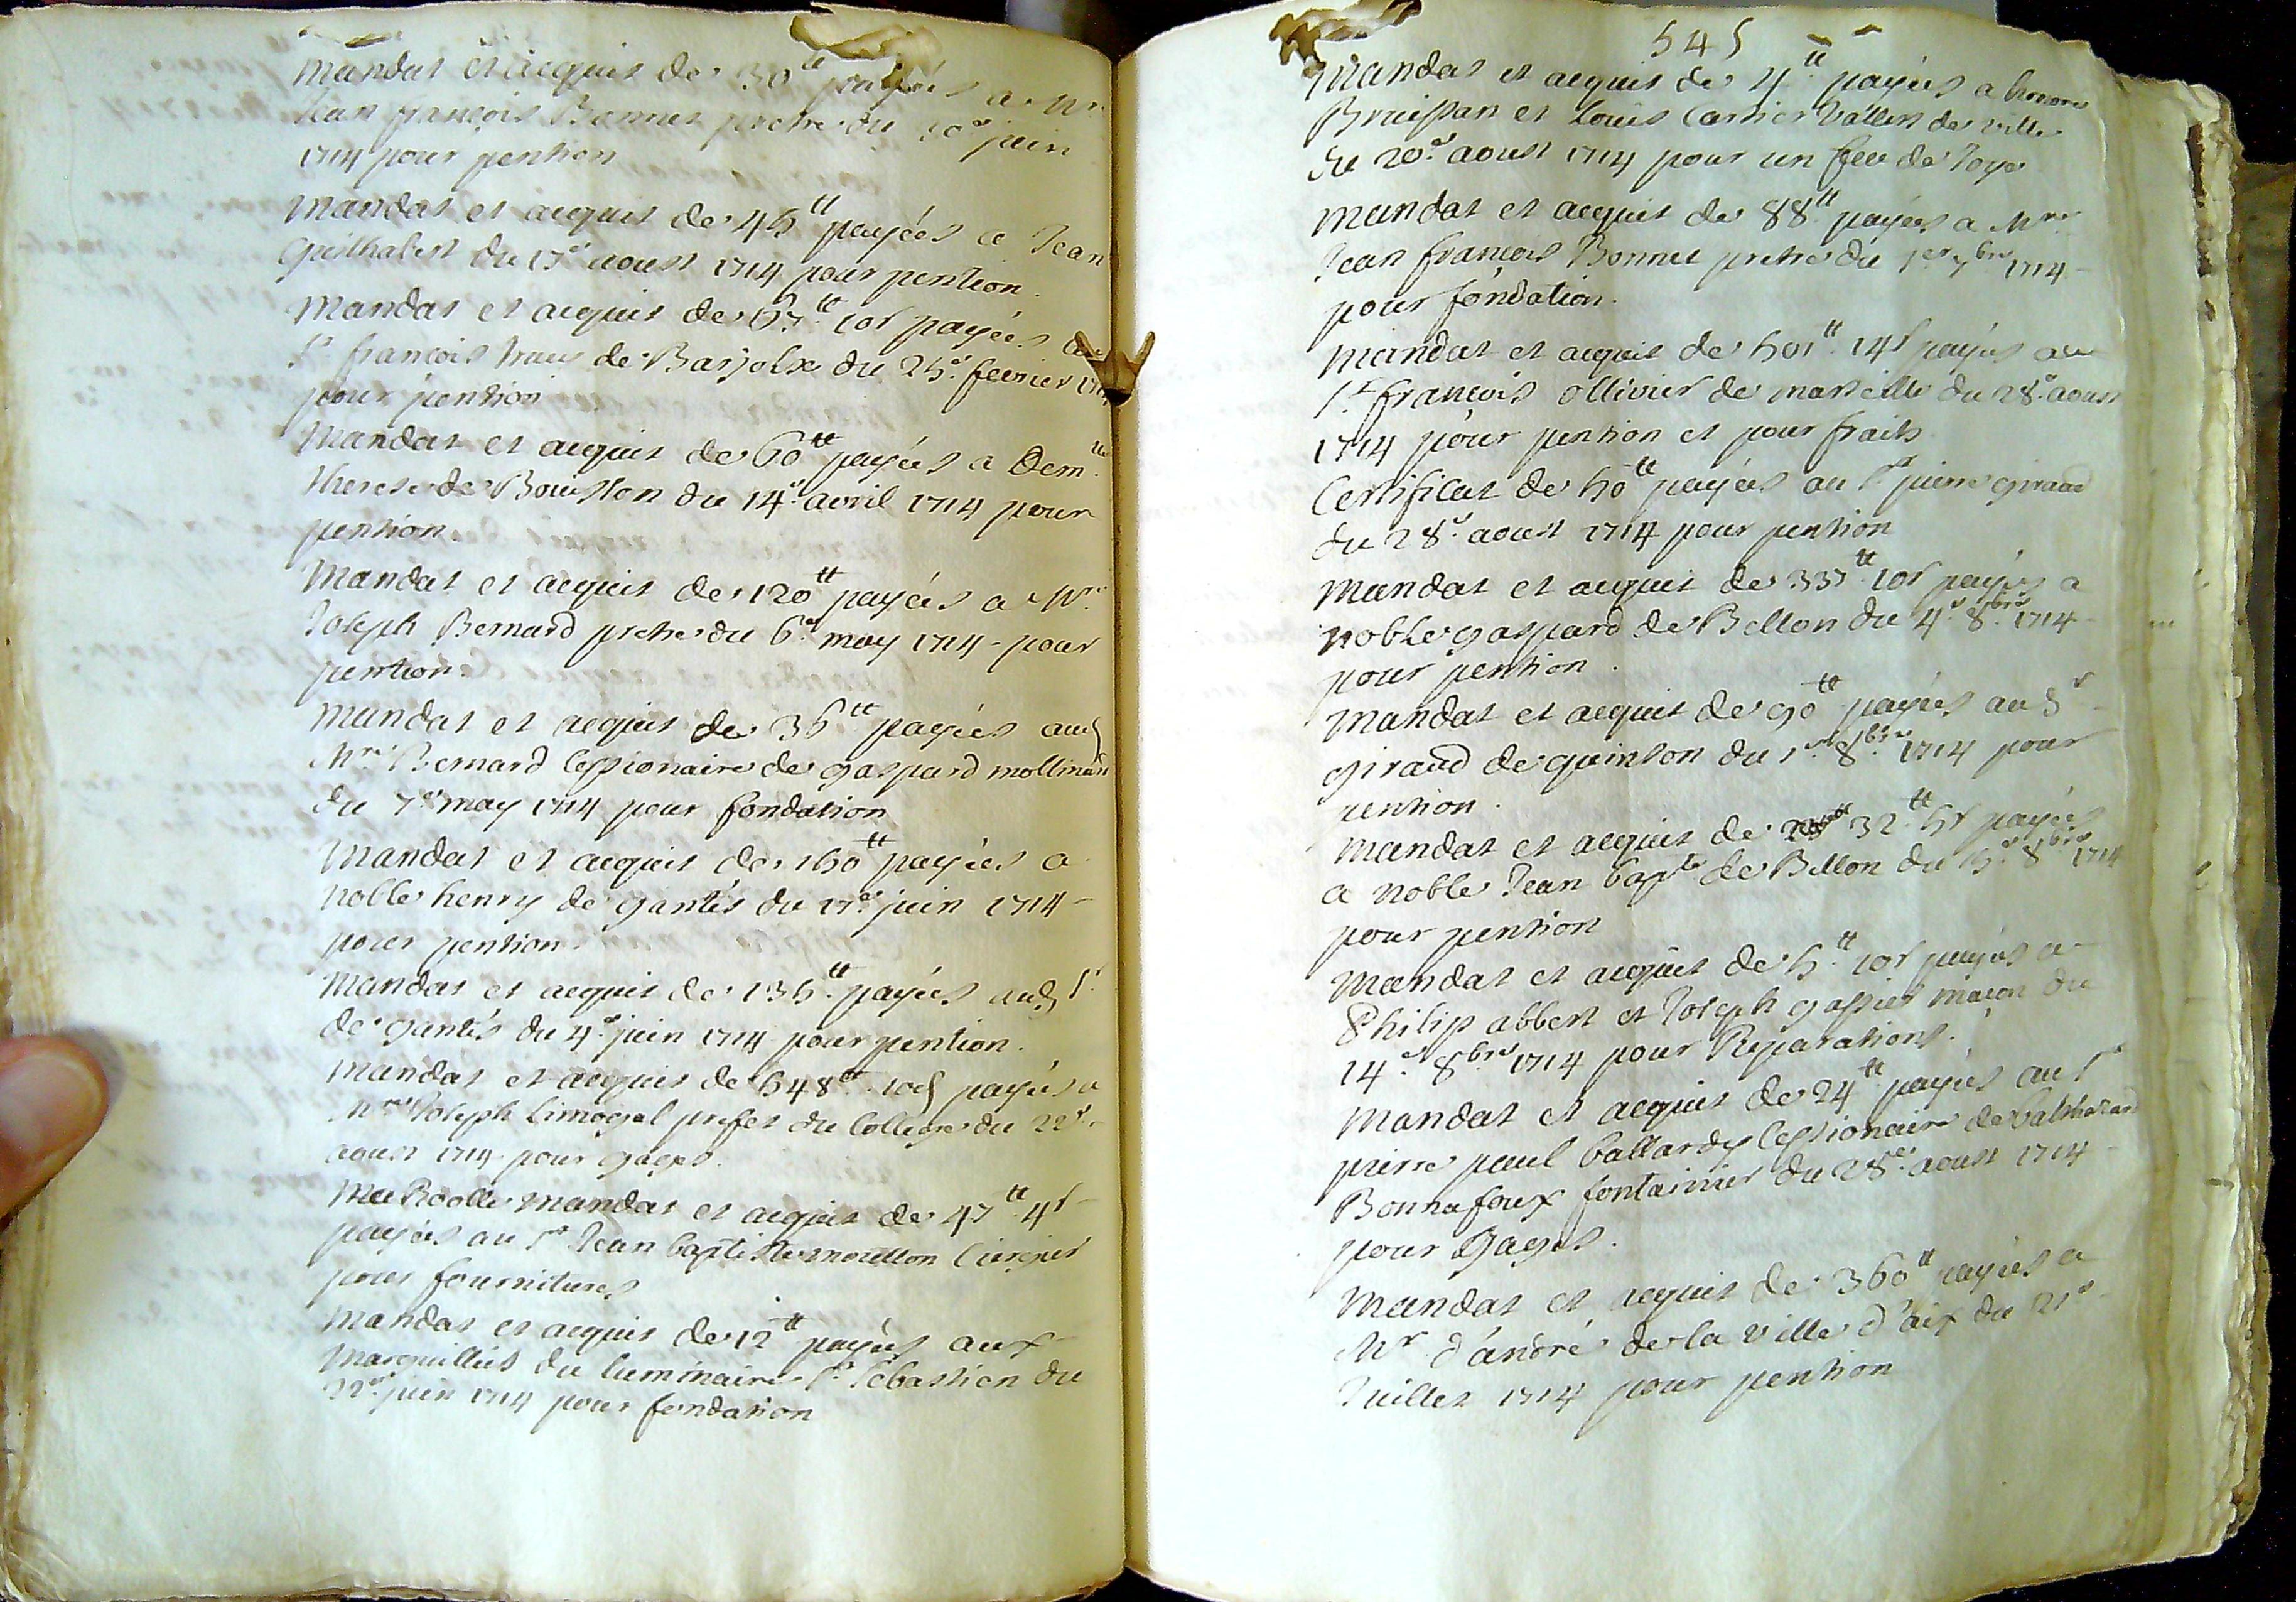 Mandat et acquit de 30tt payées a Mre
Jean françois Bonnet pretre du 10e juin
1714 pour pention
Mandat et acquit de 45tt payées a Jean
Guilhabert du 17e aoust 1714 pour pention.
Mandat et acquit de 67tt 10s payées au
Sr françois de Barjolx du 25e fevrier 1714
pour pention
Mandat et acquit de 60tt payées a Demlle
Therese de Bouiston du 14e avril 1714 pour
pention.
Mandat et acquit de 120tt payées a Mre
Joseph Bernard pretre du 6e may 1714 - pour
pention.
Mandat et acquit de 36tt payées aud
Mre Bernard Cessionaire de gaspard mollinard
du 7e may 1714 pour fondation
Mandat et acquit de 150tt payées a
noble henry de gantés du 17e juin 1714 -
pour pention.
Mandat et acquit de 135tt payées aud Sr
de gantés du 4e juin 1714 pour pention.
Mandat et acquit de 548tt 10d payées a
Mre Joseph Limogal prefet du College du 22e
aoust 1714 pour gages.
Roolle mandat et acquit de 47tt 4s
payées au Sr Jean baptiste moullon Ciergier
pour fournitures
Mandat et acquit de 12tt payées aux
Marguilliers du luminaire St Sebastien du
22e juin 1714 pour fondation
545
Mandat et acquit de 4tt payées a honoré
Bruissan et Louis Carrier Vallets de ville
du 20e aoust 1714 pour un feu de Joye
Mandat et acquit de 88tt payées a Mre
Jean françois Bonnet pretre du 1er 7bre 1714 -
pour fondation.
Mandat et acquit de 501tt 14s payées au
Sr françois ollivier de marseille du 28e aoust
1714 pour pention et pour fraits
Certificat de 50tt payées au Sr pierre giraud
du 28e aoust 1714 pour pention
Mandat et acquit de 337tt 10s payées a
noble gaspard de Bellon du 4e 8bre 1714 -
pour pention.
Mandat et acquit de 90tt payées au Sr
giraud de quinson du 1er 8bre 1714 pour
pention.
Mandat et acquit de 32tt 5s payées
a noble Jean bapte de Bellon du 5e 8bre 1714
pour pention
Mandat et acquit de 5tt 10s payées a
Philip abbert et Joseph gassier maçon du
14e 8bre 1714 pour Reparations.
Mandat et acquit de 24tt payées au Sr
pierre paul ballardy Cessionaire de balthazard
Bonnafoux fontainier du 28e aoust 1714 -
pour Gages.
Mandat et acquit de 360tt payées a
Mr d'andré de la ville d'aix du 21e
Juillet 1714 pour pention